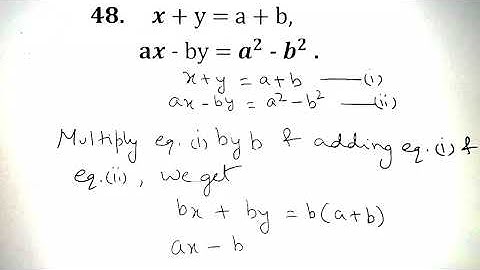 48. x + y = a + b,
ax - by = a² - b² .
x+y = a+b —(i)
ax-by = a²-b² —(ii)
Multiply eq.(i) by b & adding eq.(i) &
eq.(ii), we get
bx + by = b(a+b)
ax - b